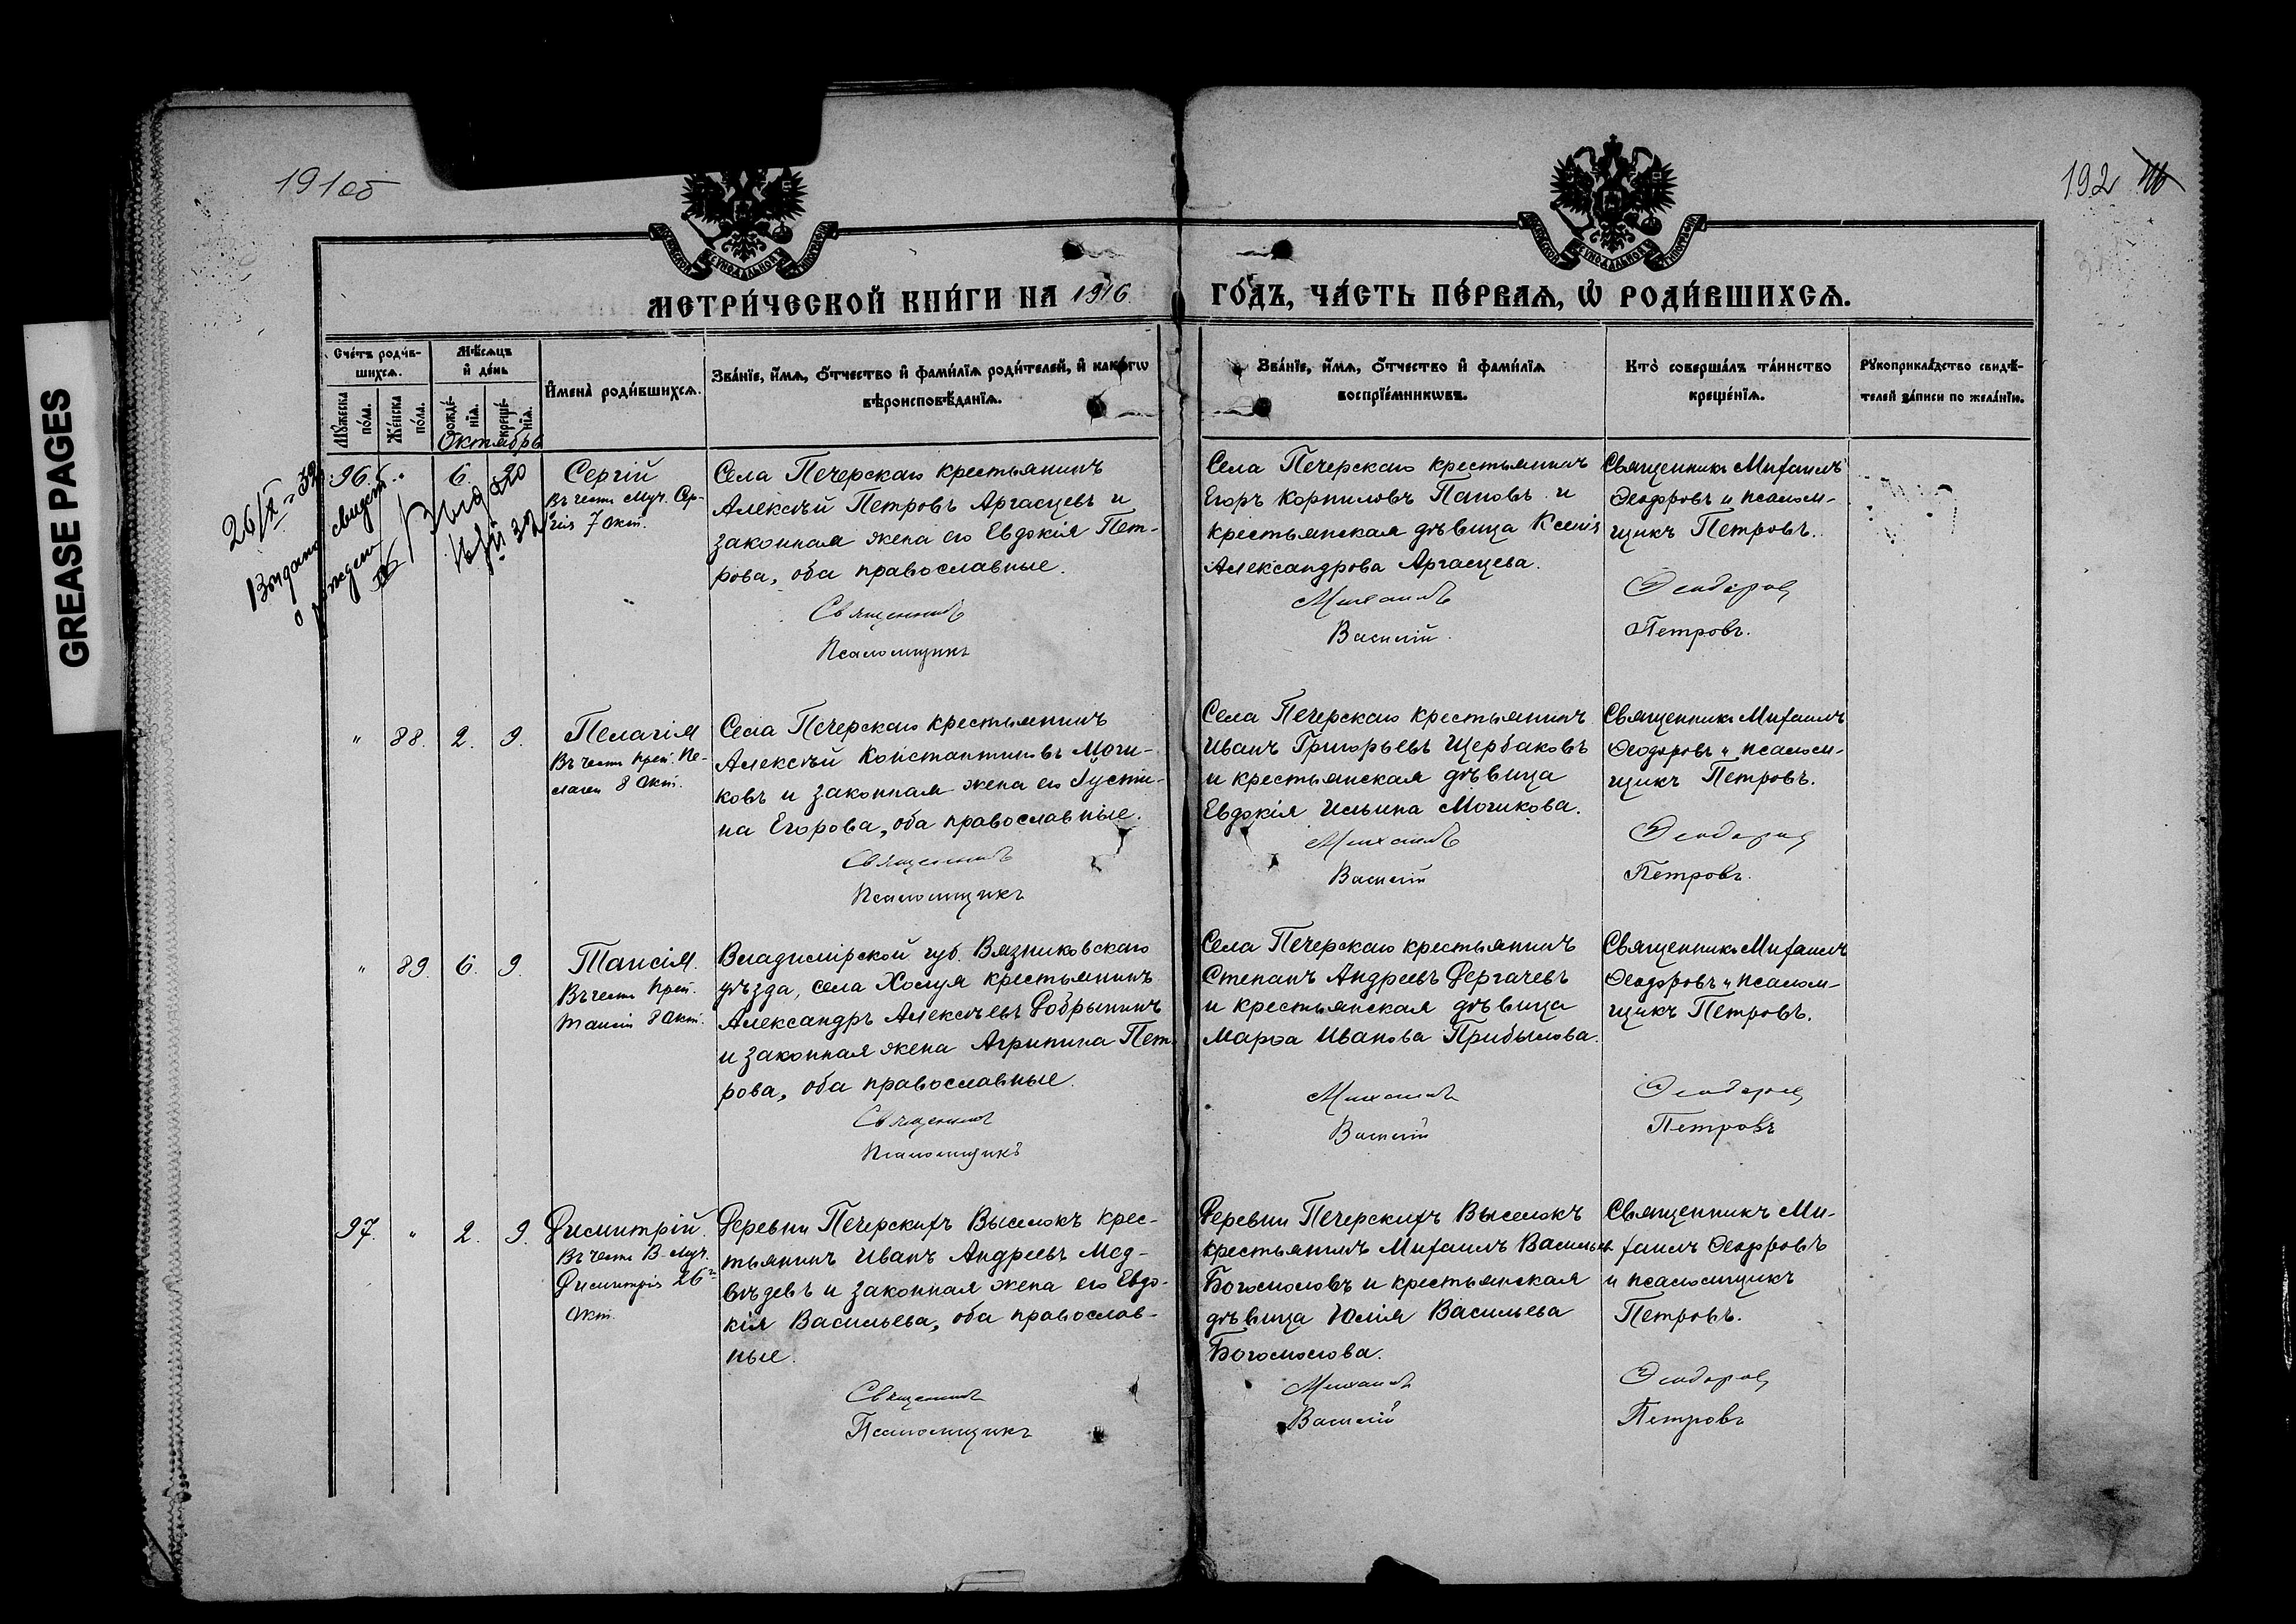 GREASE PAGES
191об
192
МЕТРИ́ЧЕСКОЙ КНИ́ГИ НА 1916
ГО́ДЪ, ЧА́СТЬ ПЕ́РВАѦ, Ѡ҆ РОДИ́ВШИХСѦ.
Сче́тъ роди́в-
шихсѧ.
Мꙋ́жеска по́ла.
Же́нска по́ла.
Мѣ́сѧцъ
и҆ де́нь
рожде́-
нїѧ.
креще́-
нїѧ.
И҆мена̀ роди́вшихсѧ.
Зва́нїе, и҆́мѧ, ѻ҆́тчество и҆ фами́лїѧ роди́телей, и҆ како́гѡ
вѣроисповѣ́данїѧ.
Зва́нїе, и҆́мѧ, ѻ҆́тчество и҆ фами́лїѧ
воспрїе́мникѡвъ.
Кто̀ соверша́лъ та́инство
креще́нїѧ.
Рꙋкоприкла́дство свидѣ́-
телей за́писи по жела́нїю.
Октябрь
26/X 32
Выдано свидет.
о рожден.
96. „ 6. 20
Сергій
Въ честь Муч. Сер-
гія 7 Окт.
Села Печерскаго крестьянинъ
Алексѣй Петровъ Аргасцевъ и
законная жена его Евдокія Пет-
рова, оба православные.
Священникъ
Псаломщикъ
Села Печерскаго крестьянинъ
Егоръ Корниловъ Поповъ и
крестьянская дѣвица Ксенія
Александрова Аргасцева.
Михаилъ
Василій
Священникъ Михаилъ
Ѳеодоровъ и псалом-
щикъ Петровъ.
Ѳеодоровъ
Петровъ.
„ 88. 2. 9.
Пелагія
Въ честь Преп. Пе-
лагеи 8 Окт.
Села Печерскаго крестьянинъ
Алексѣй Константиновъ Моги-
ковъ и законная жена его Іусти-
на Егорова, оба православные.
Священникъ
Псаломщикъ
Села Печерскаго крестьянинъ
Иванъ Григорьевъ Щербаковъ
и крестьянская дѣвица
Евдокія Ильина Могикова.
Михаилъ
Василій
Священникъ Михаилъ
Ѳеодоровъ и псалом-
щикъ Петровъ.
Ѳеодоровъ
Петровъ.
„ 89. 6. 9.
Таисія.
Въ честь Преп.
Таисіи 8 Окт.
Владимірской губ. Вязниковскаго
уѣзда, села Холуя крестьянинъ
Александръ Алексѣевъ Добрынинъ
и законная жена Агрипина Пет-
рова, оба православные.
Священникъ
Псаломщикъ
Села Печерскаго крестьянинъ
Степанъ Андреевъ Дергачевъ
и крестьянская дѣвица
Марѳа Иванова Прибылова.
Михаилъ
Василій
Священникъ Михаилъ
Ѳеодоровъ и псалом-
щикъ Петровъ.
Ѳеодоровъ
Петровъ
97. „ 2. 9.
Димитрій.
Въ честь В-муч.
Димитрія 26го
Окт.
Деревни Печерскихъ Выселокъ крес-
тьянинъ Иванъ Андреевъ Мед-
вѣдевъ и законная жена его Евдо-
кія Васильева, оба православ-
ные.
Священникъ
Псаломщикъ
Деревни Печерскихъ Выселокъ
крестьянинъ Михаилъ Васильев
Богомоловъ и крестьянская
дѣвица Юлія Васильева
Богомолова.
Михаилъ
Василій
Священникъ Ми-
хаилъ Ѳеодоровъ
и псаломщикъ
Петровъ.
Ѳеодоровъ
Петровъ